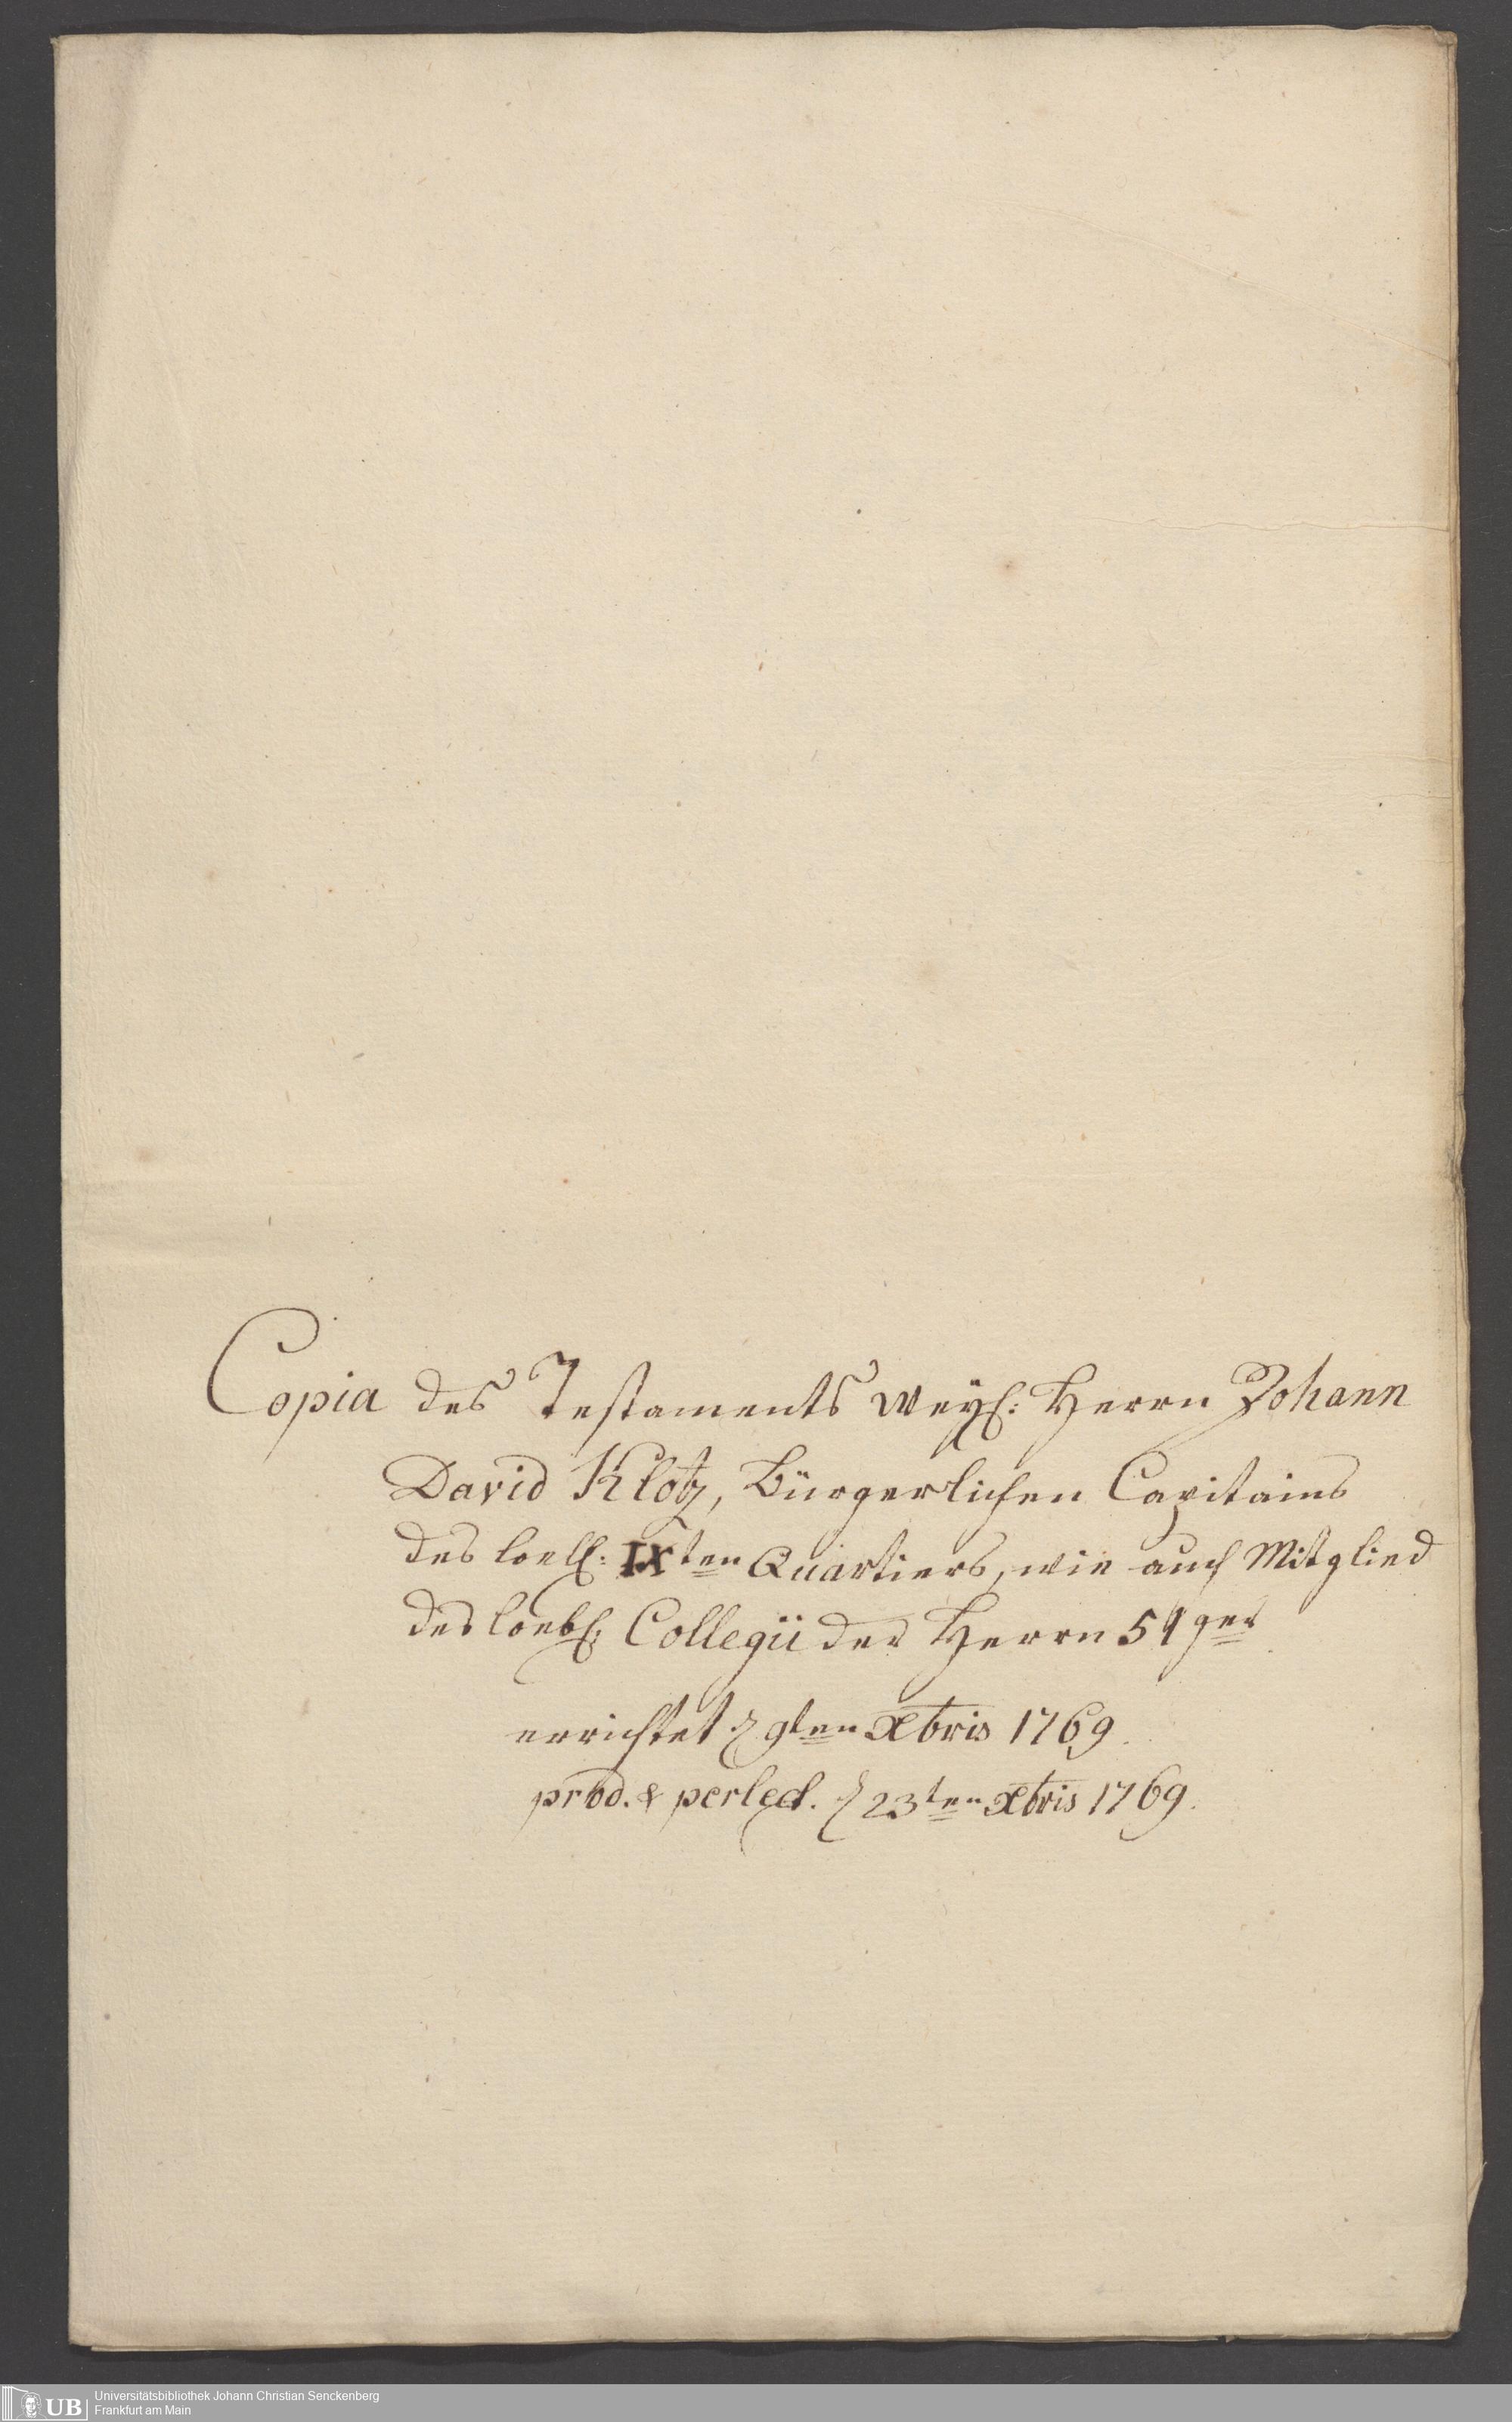 Copia des Testaments Weyl: Herrn Johann
David Klotz, Bürgerlichen Capitains
des loebl: IXten Quartiers, wie auch Mitglied
des loebl: Collegii der Herrn 51ger
errichtet d 9ten Xbris 1769.
prod. & perlect. d 23ten Xbris 1769.
UB
Universitätsbibliothek Johann Christian Senckenberg
Frankfurt am Main